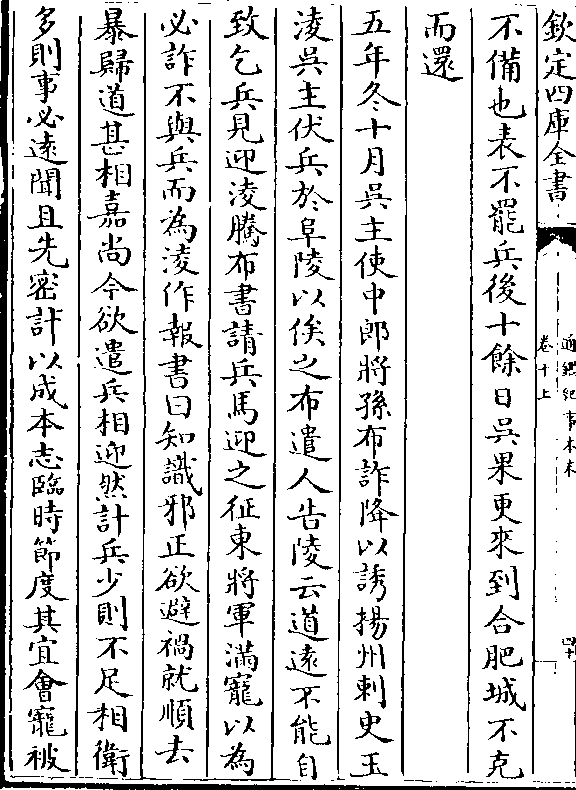 欽定四庫全書
通鑑紀事本末
卷十上
不備也表不罷兵後十餘日吳果更來到合肥城不克
而還
五年冬十月吳主使中郎將孫布詐降以誘揚州刺史王
淩吳主伏兵於阜陵以俟之布遣人告陵云道遠不能自
致乞兵見迎淩騰布書請兵馬迎之征東將軍滿寵以為
必詐不與兵而為淩作報書曰知識邪正欲避禍就順去
暴歸道甚相嘉尚今欲遣兵相迎然計兵少則不足相衛
多則事必遠聞且先密計以成本志臨時節度其宜會寵被